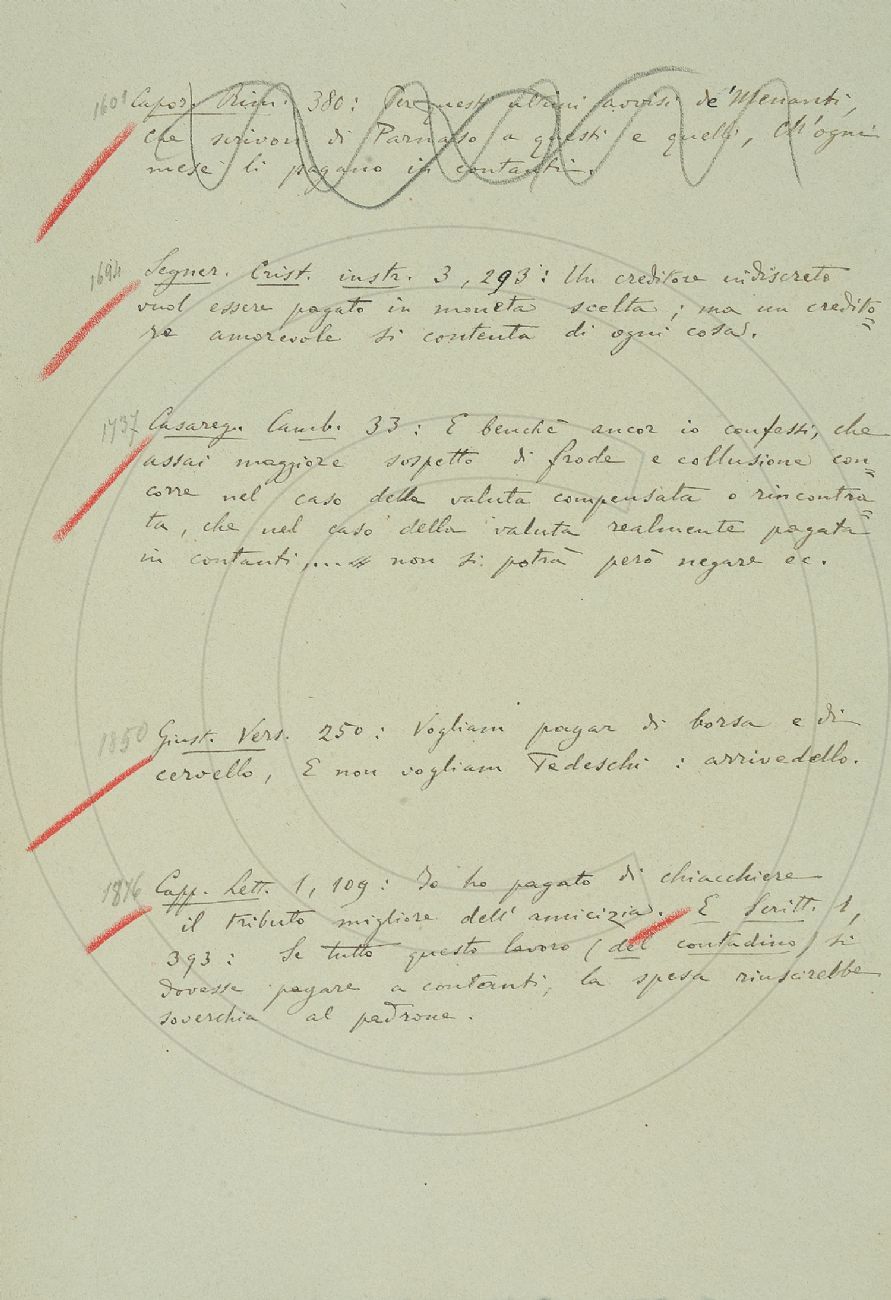 1601 Capor. Rim. 380: Per questi ultimi avvisi de' Menanti,
che scrivon di Parnaso a questi e quelli, Ch'ogni
mese li pagano in contanti.
1694 Segner. Crist. instr. 3, 293: Un creditore indiscreto
vuol essere pagato in moneta scelta; ma un credito=
re amorevole si contenta di ogni cosa.
1737 Casareg. Camb. 33: E benchè ancor io confessi, che
assai maggiore sospetto di frode e collusione con=
corre nel caso della valuta compensata o rincontra=
ta, che nel caso della valuta realmente pagata
in contanti,... non si potrà però negare ec.
1850 Giust. Vers. 250: Vogliam pagar di borsa e di
cervello, E non vogliam Tedeschi: arrivedello.
1876 Capp. Lett. 1, 109: Io ho pagato di chiacchiere
il tributo migliore dell'amicizia. E Scritt. 1,
393: Se tutto questo lavoro (del contadino) si
dovesse pagare a contanti, la spesa riuscirebbe
soverchia al padrone.